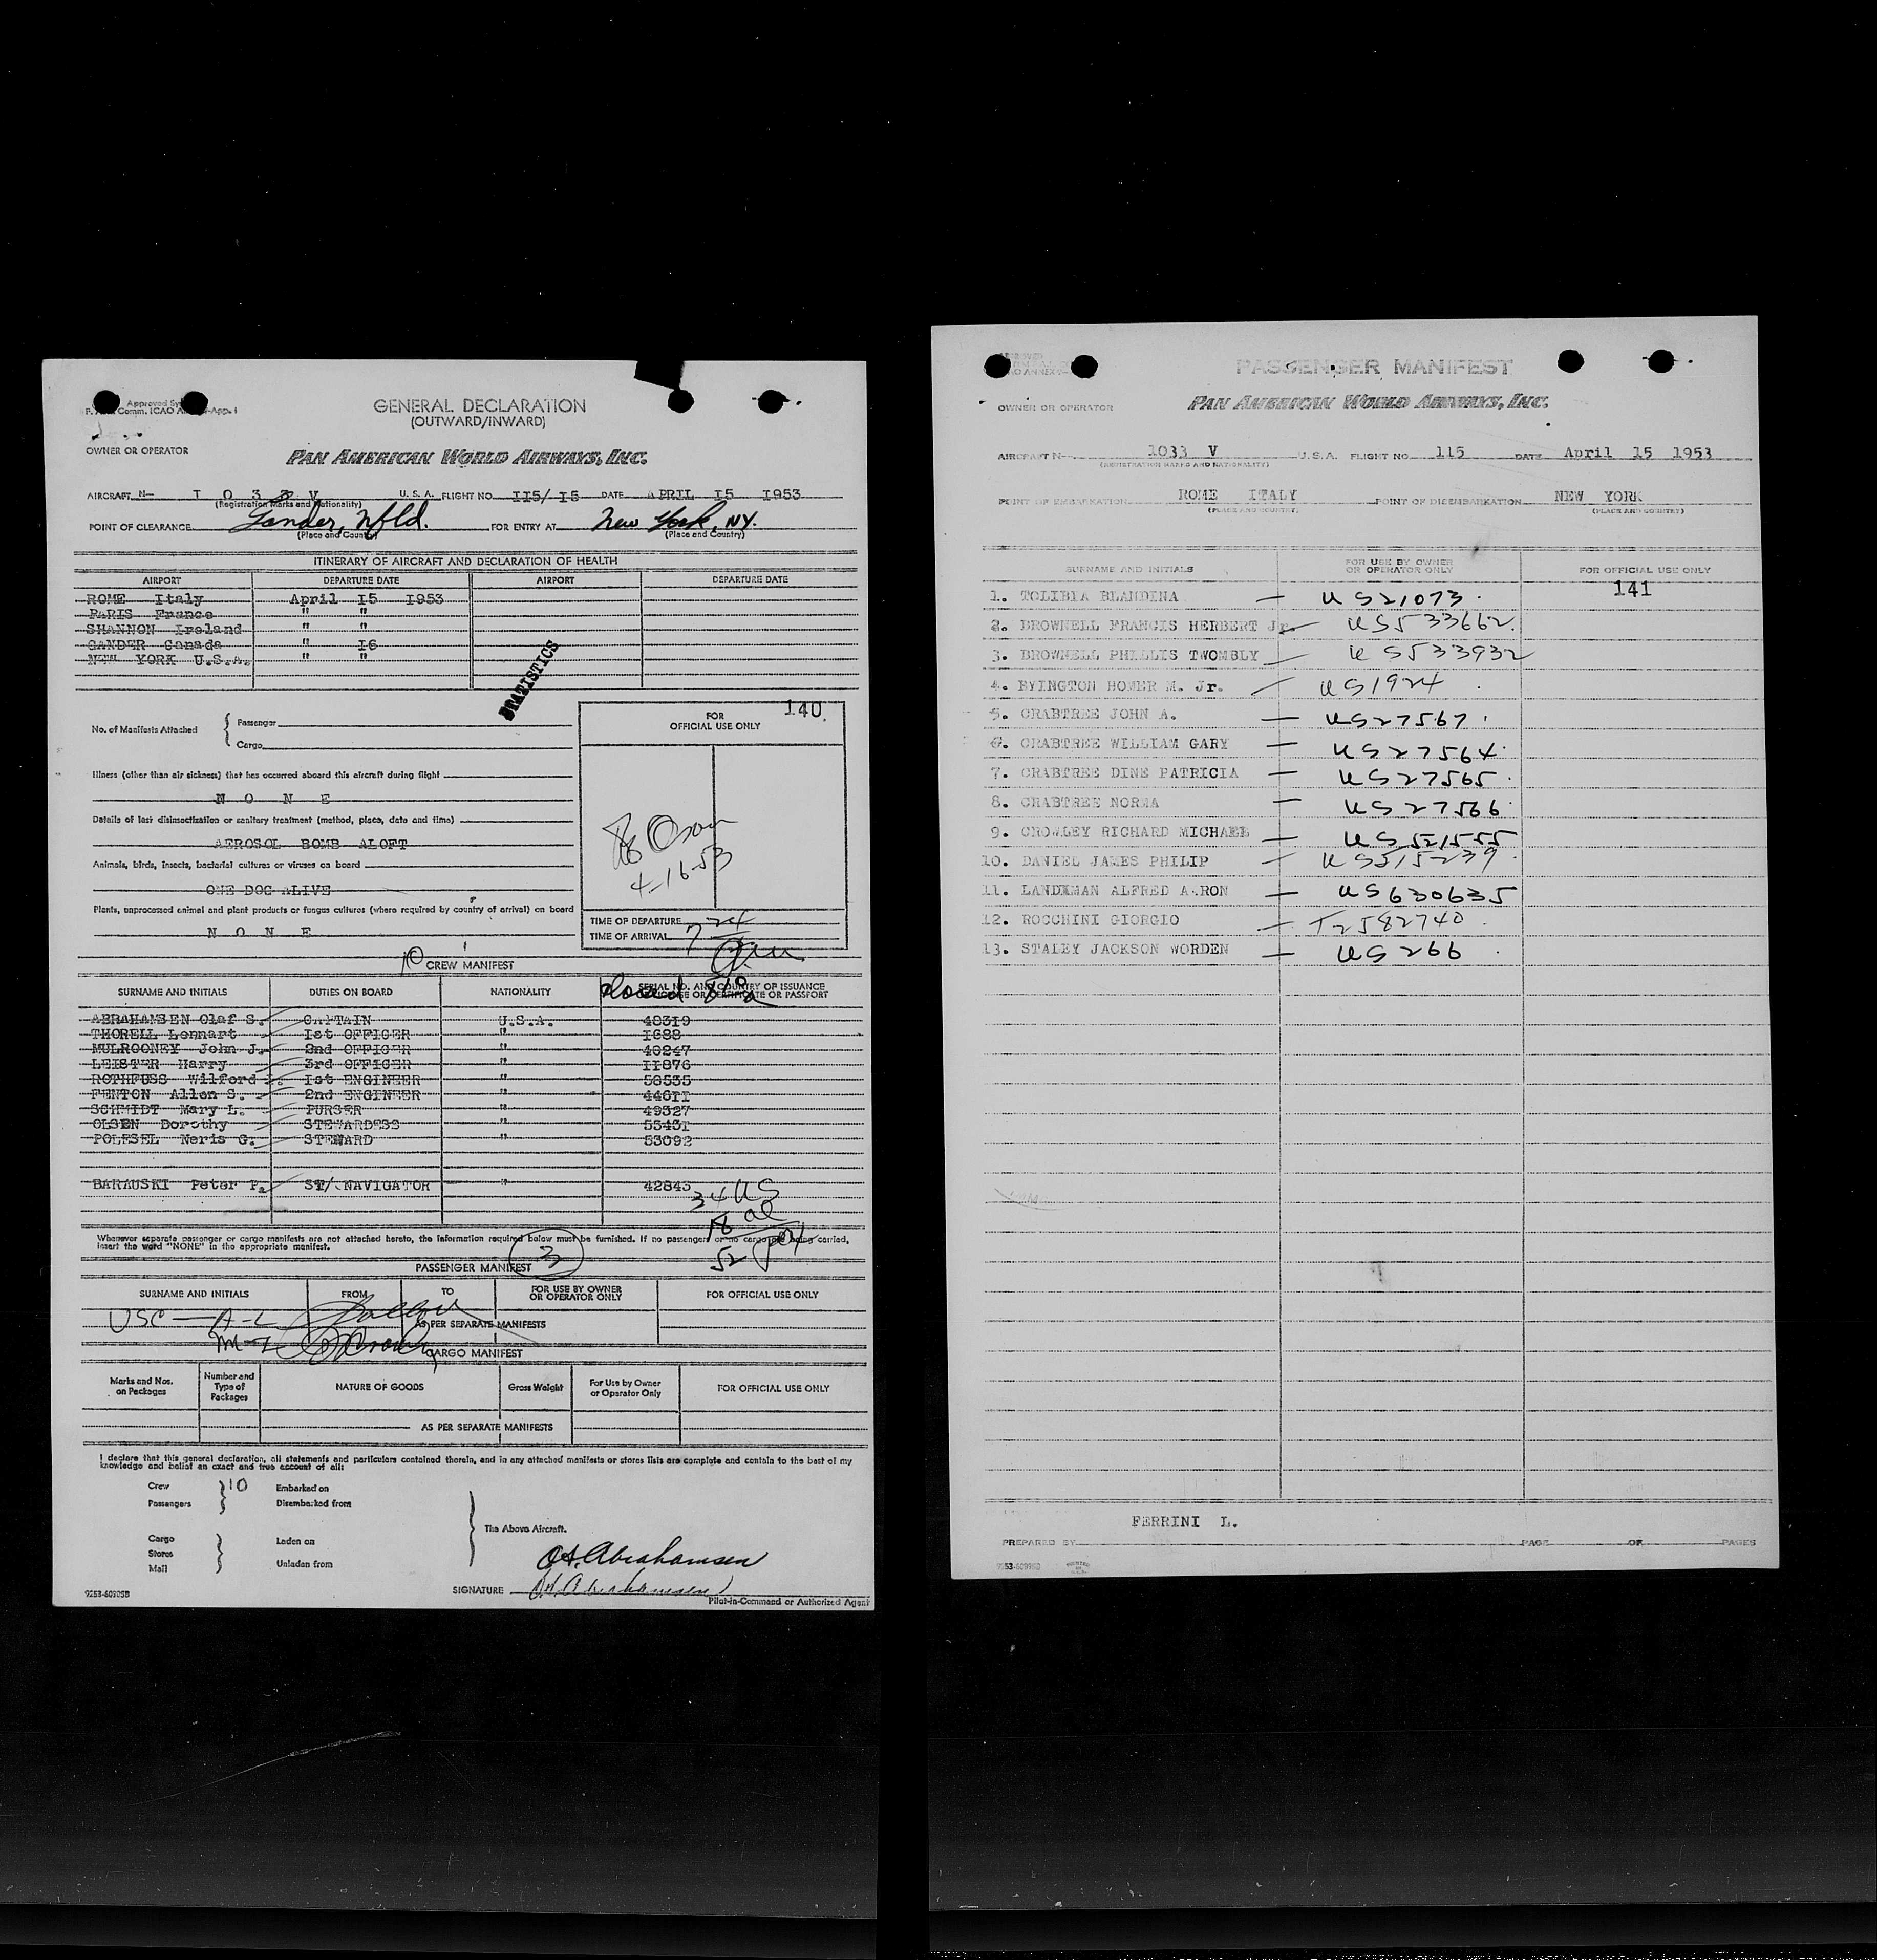 GENERAL DECLARATION
(OUTWARD/INWARD)
OWNER OR OPERATOR
PAN AMERICAN WORLD AIRWAYS, INC.
AIRCRAFT N- I 0 3 3 V U. S. A. FLIGHT NO. II5/ I5 DATE APRIL I5 I953
(Registration Marks and Nationality)
POINT OF CLEARANCE Gander, Nfld. FOR ENTRY AT New York, NY.
(Place and Country) (Place and Country)
ITINERARY OF AIRCRAFT AND DECLARATION OF HEALTH
AIRPORT DEPARTURE DATE AIRPORT DEPARTURE DATE
ROME Italy April I5 I953
PARIS France " "
SHANNON Ireland " "
GANDER Canada " I6
NEW YORK U.S.A. " "
No. of Manifests Attached { Passenger
Cargo
FOR OFFICIAL USE ONLY 140
Illness (other than air sickness) that has occurred aboard this aircraft during flight
N O N E
Details of last disinsectization or sanitary treatment (method, place, date and time)
AEROSOL BOMB ALOFT
4-16-53
Animals, birds, insects, bacterial cultures or viruses on board
ONE DOG ALIVE
Plants, unprocessed animal and plant products or fungus cultures (where required by country of arrival) on board
N O N E
TIME OF DEPARTURE
TIME OF ARRIVAL 7 24
10 CREW MANIFEST
SURNAME AND INITIALS DUTIES ON BOARD NATIONALITY SERIAL NO. AND COUNTRY OF ISSUANCE OF LICENSE OR CERTIFICATE OR PASSPORT
ABRAHAMSEN Olaf S. CAPTAIN U.S.A. 40319
THORELL Lennart Ist OFFICER " I688
MULROONEY John J. 2nd OFFICER " 40247
LEISTER Harry 3rd OFFICER " II876
ROTHFUSS Wilford Ist ENGINEER " 58535
FENTON Allen S. 2nd ENGINEER " 446II
SCHMIDT Mary L. PURSER " 49327
OLSEN Dorothy STEWARDESS " 5543I
POLESEL Neris G. STEWARD " 53092
BARAUSKI Peter P. ST/.NAVIGATOR " 42843
34 US
18 al
52
Whenever separate passenger or cargo manifests are not attached hereto, the information required below must be furnished. If no passenger or no cargo are being carried,
insert the word "NONE" in the appropriate manifest.
3
PASSENGER MANIFEST
SURNAME AND INITIALS FROM TO FOR USE BY OWNER OR OPERATOR ONLY FOR OFFICIAL USE ONLY
USC — A-L
AS PER SEPARATE MANIFESTS
M-Z
CARGO MANIFEST
Marks and Nos. on Packages Number and Type of Packages NATURE OF GOODS Gross Weight For Use by Owner or Operator Only FOR OFFICIAL USE ONLY
AS PER SEPARATE MANIFESTS
I declare that this general declaration, all statements and particulars contained therein, and in any attached manifests or stores lists are complete and contain to the best of my
knowledge and belief an exact and true account of all:
Crew 10 Embarked on
Passengers Disembarked from
The Above Aircraft.
Cargo Laden on
Stores
Mail Unladen from
O.S. Abrahamsen
SIGNATURE
Pilot-in-Command or Authorized Agent
PASSENGER MANIFEST
OWNER OR OPERATOR PAN AMERICAN WORLD AIRWAYS, INC.
AIRCRAFT N- 1033 V U.S.A. FLIGHT NO. 115 DATE April 15 1953
(REGISTRATION MARKS AND NATIONALITY)
POINT OF EMBARKATION ROME ITALY POINT OF DISEMBARKATION NEW YORK
(PLACE AND COUNTRY) (PLACE AND COUNTRY)
SURNAME AND INITIALS FOR USE BY OWNER OR OPERATOR ONLY FOR OFFICIAL USE ONLY
141
1. TOLIBIA BLANDINA — US21073
2. BROWNELL FRANCIS HERBERT Jr. — US533662
3. BROWNELL PHILLIS TWOMBLY — US533932
4. BYINGTON HOMER M. Jr. — US1924
5. CRABTREE JOHN A. — US27567
6. CRABTREE WILLIAM GARY — US27564
7. CRABTREE DINE PATRICIA — US27565
8. CRABTREE NORMA — US27566
9. CROWLEY RICHARD MICHAEL — US521555
10. DANIEL JAMES PHILIP — US515239
11. LANDEMAN ALFRED AARON — US630635
12. ROCCHINI GIORGIO — T2582740
13. STALEY JACKSON WORDEN — US266
FERRINI L.
PREPARED BY PAGE OF PAGES